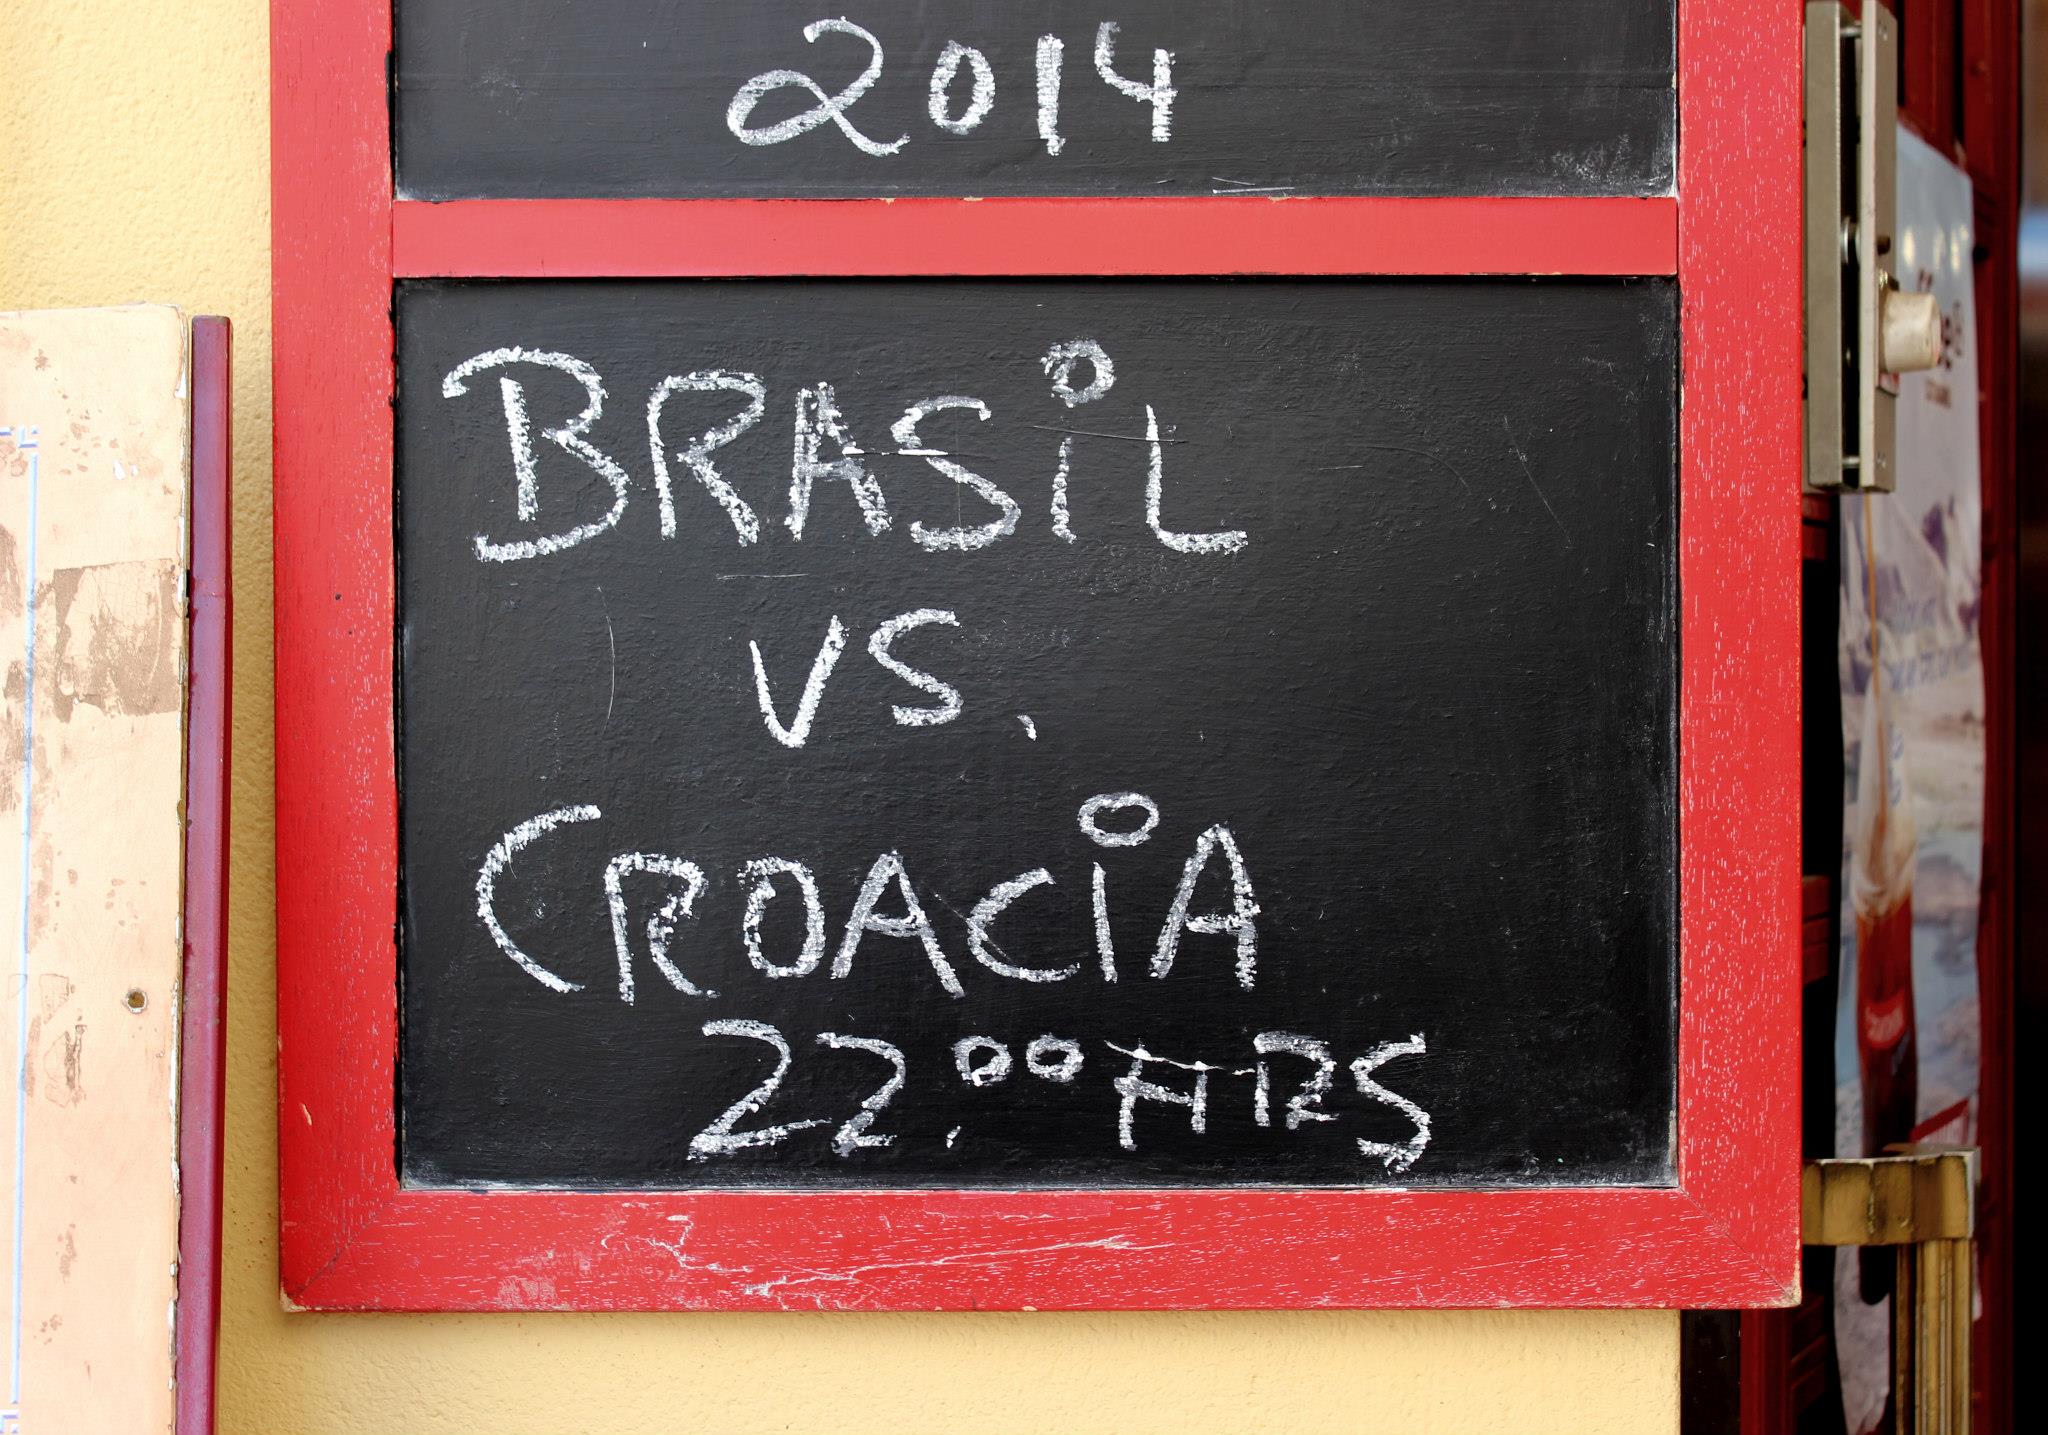 2014
BRASiL
vs.
CROACiA
22.00 HRS